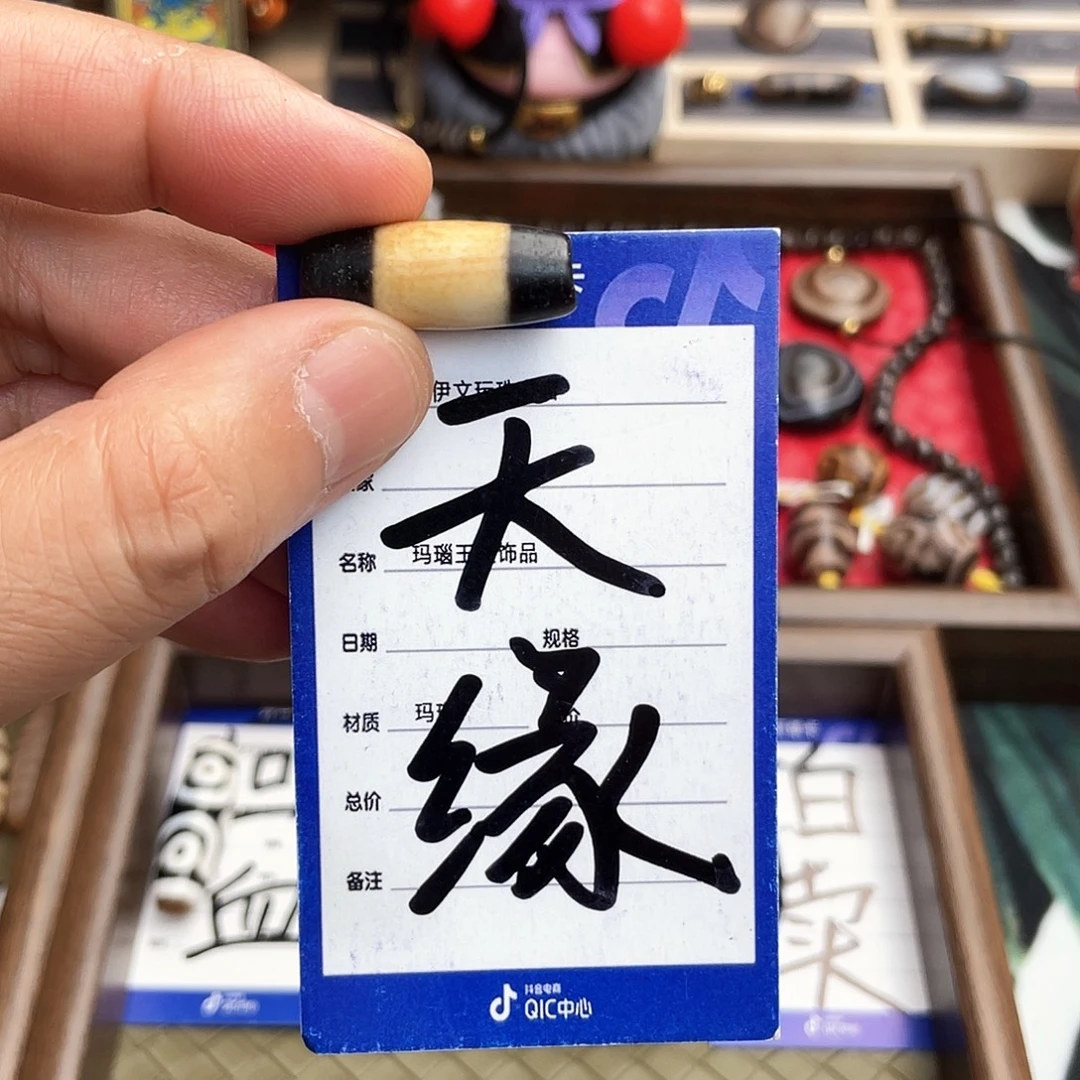 卡
伊文玩珠
天
家
名称 玛瑙玉 饰品
日期 规格
缘
材质 玛 价
总价
备注
抖音电商
QIC中心